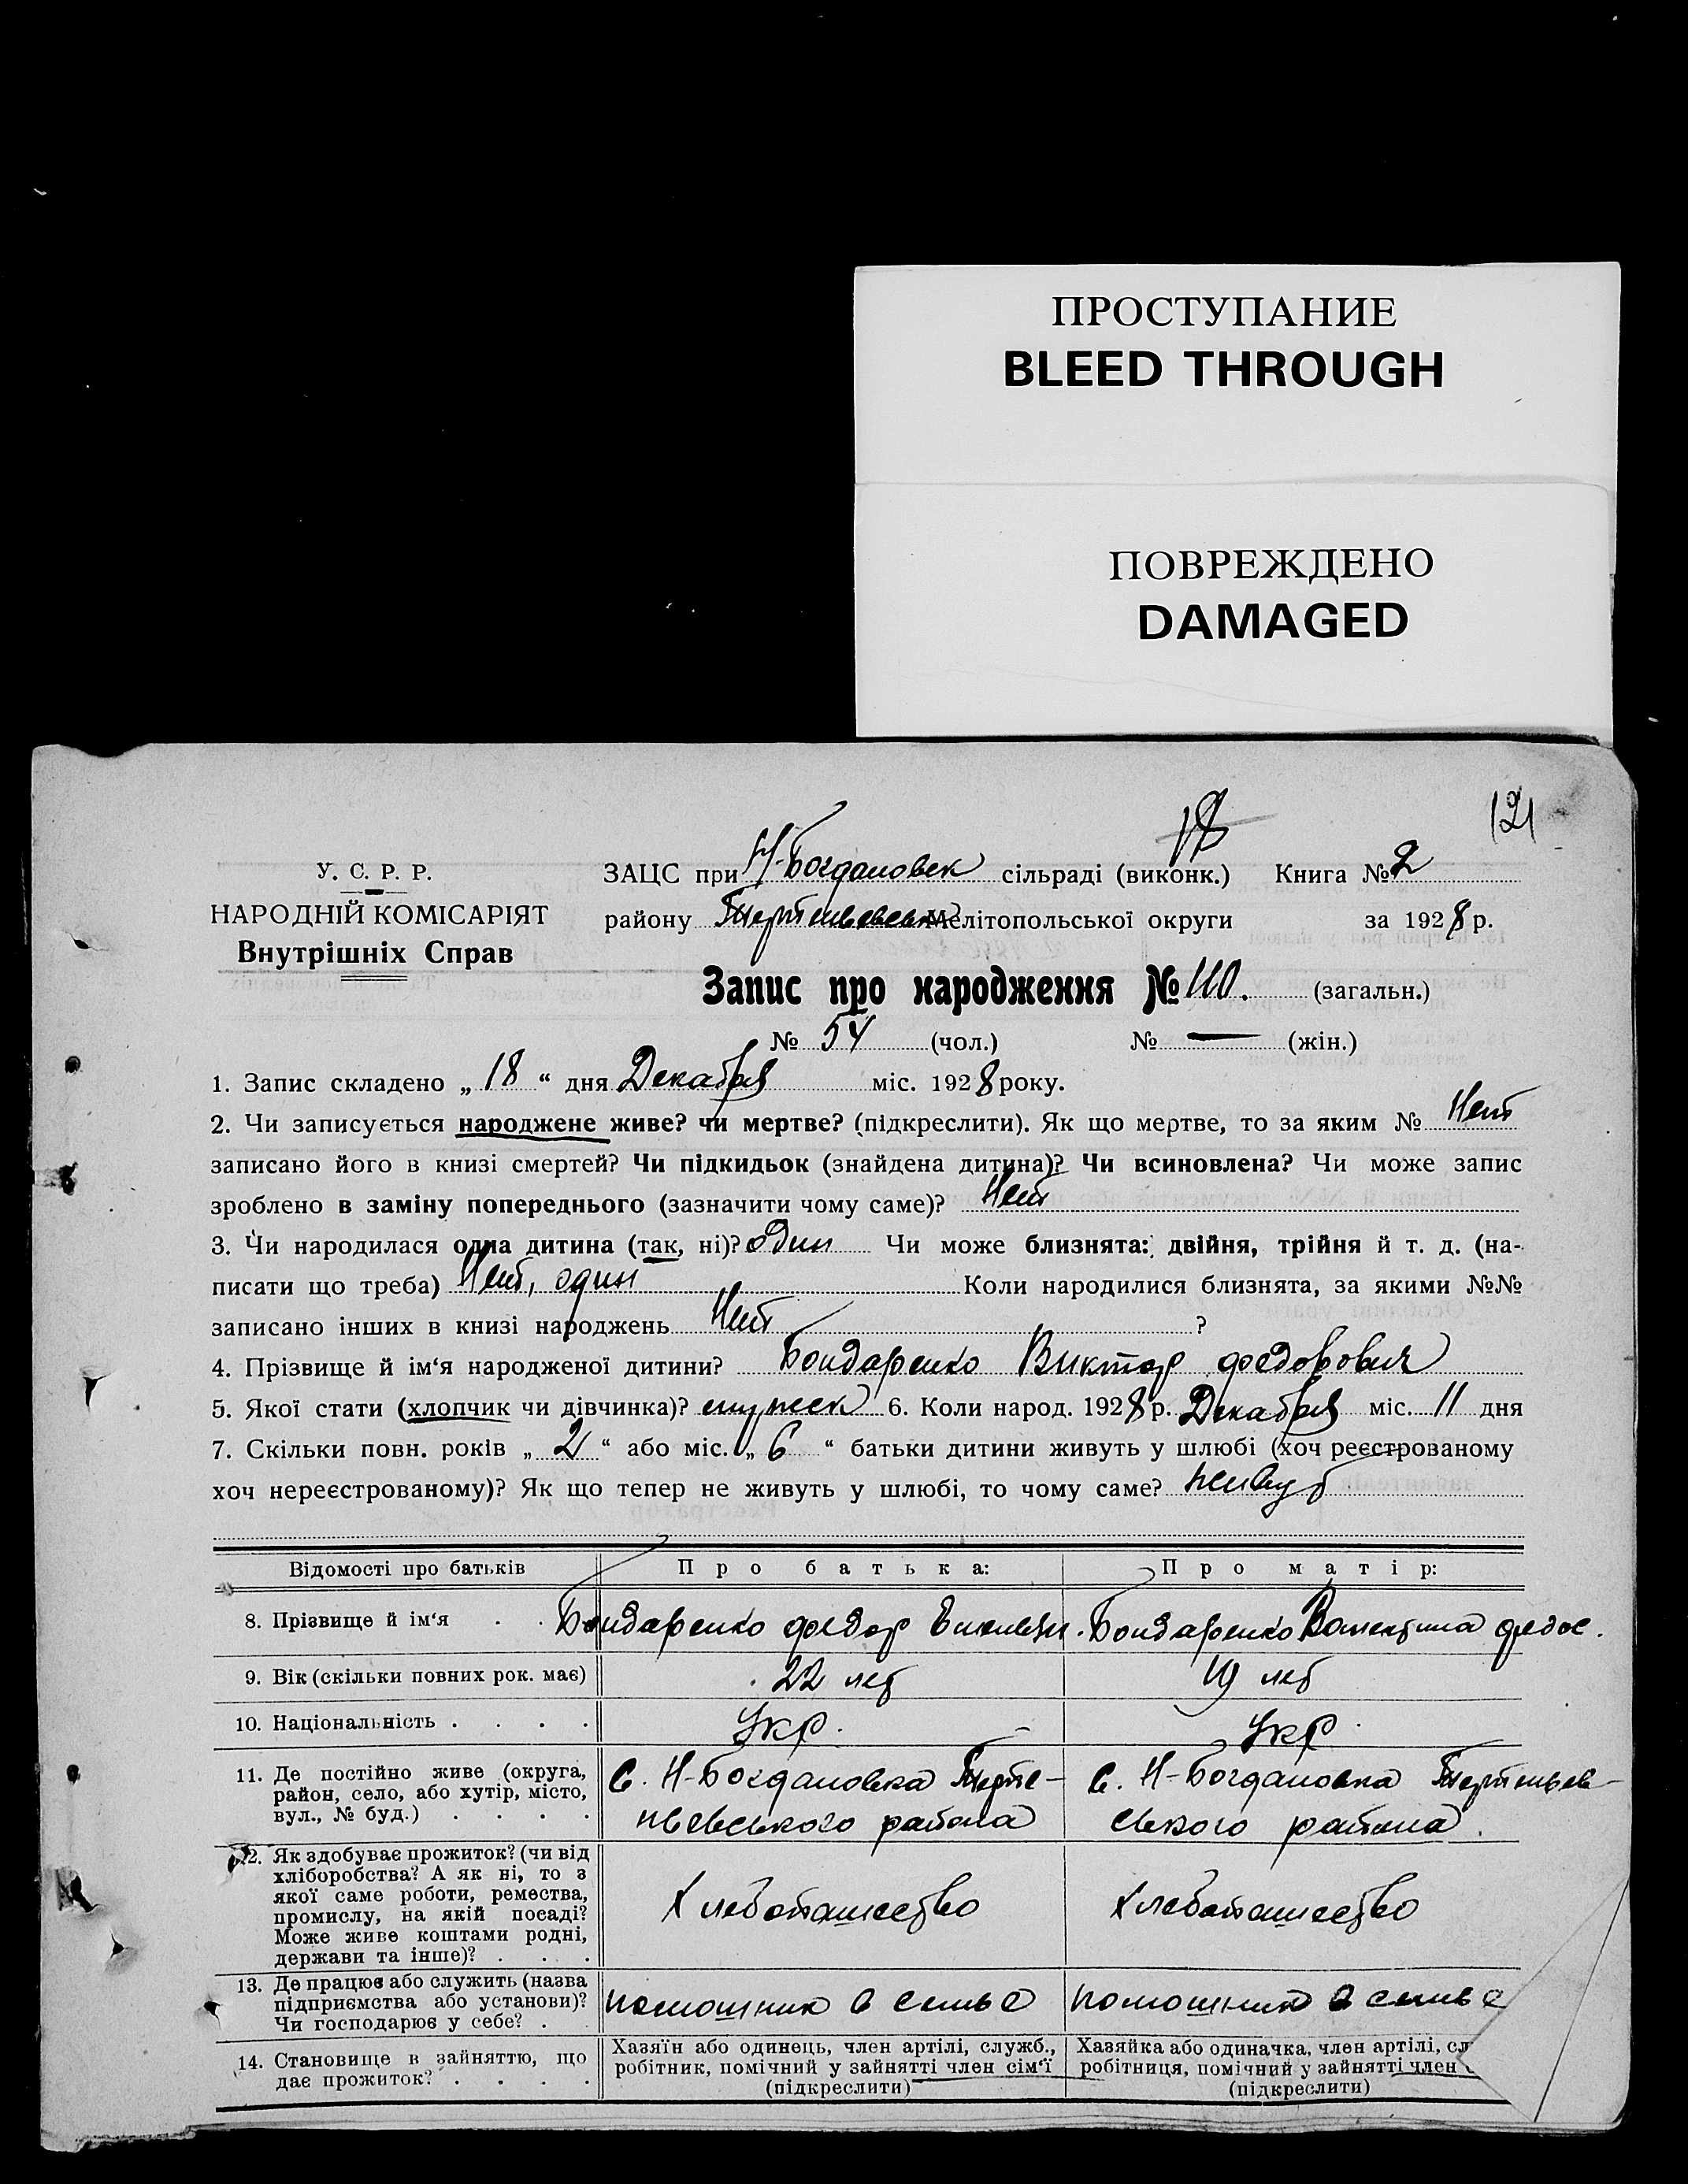 ПРОСТУПАНИЕ
BLEED THROUGH
ПОВРЕЖДЕНО
DAMAGED
121
У. С. Р. Р.
НАРОДНІЙ КОМІСАРІЯТ
Внутрішніх Справ
ЗАЦС при Н-Богдановск сільраді (виконк.) Книга № 2
району Мелітопольської округи за 1928 р.
Запис про народження № 110. (загальн.)
№ 54 (чол.) № — (жін.)
1. Запис складено „ 18 “ дня Декабря міс. 1928 року.
2. Чи записується народжене живе? чи мертве? (підкреслити). Як що мертве, то за яким № Нет
записано його в книзі смертей? Чи підкидьок (знайдена дитина)? Чи всиновлена? Чи може запис
зроблено в заміну попереднього (зазначити чому саме)? Нет
3. Чи народилася одна дитина (так, ні)? один Чи може близнята: двійня, трійня й т. д. (на-
писати що треба) Нет, один Коли народилися близнята, за якими №№
записано інших в книзі народжень Нет ?
4. Прізвище й ім‘я народженої дитини? Бондаренко Виктор Федорович
5. Якої стати (хлопчик чи дівчинка)? мужск 6. Коли народ. 1928 р. Декабря міс. 11 дня
7. Скільки повн. років „ 2 “ або міс. „ 6 “ батьки дитини живуть у шлюбі (хоч реєстрованому
хоч нереєстрованому)? Як що тепер не живуть у шлюбі, то чому саме? живут
Відомості про батьків Про батька: Про матір:
8. Прізвище й ім‘я . . Бондаренко Федор Бондаренко Валентина Федос.
9. Вік (скільки повних рок. має) 22 лет 19 лет
10. Національність . . . . Укр. Укр.
11. Де постійно живе (округа,
район, село, або хутір, місто,
вул., № буд.) . . . .
с. Н-Богдановка Терпе-
ньевського района
с. Н-Богдановка Терпеньев-
ського района
12. Як здобуває прожиток? (чи від
хліборобства? А як ні, то з
якої саме роботи, ремества,
промислу, на якій посаді?
Може живе коштами родні,
держави та інше)? . . .
Хлебопашество Хлебопашество
13. Де працює або служить (назва
підприємства або установи)?
Чи господарює у себе? .
помощник в семье помощник в семье
14. Становище в зайняттю, що
дає прожиток? . . . .
Хазяїн або одинець, член артілі, служб.,
робітник, помічний у зайнятті член сім‘ї
(підкреслити)
Хазяйка або одиначка, член артілі, сл
робітниця, помічний у зайнятті член
(підкреслити)